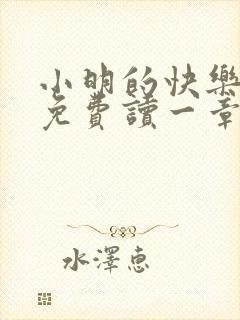 小明的快樂
免費讀一章
水澤惠